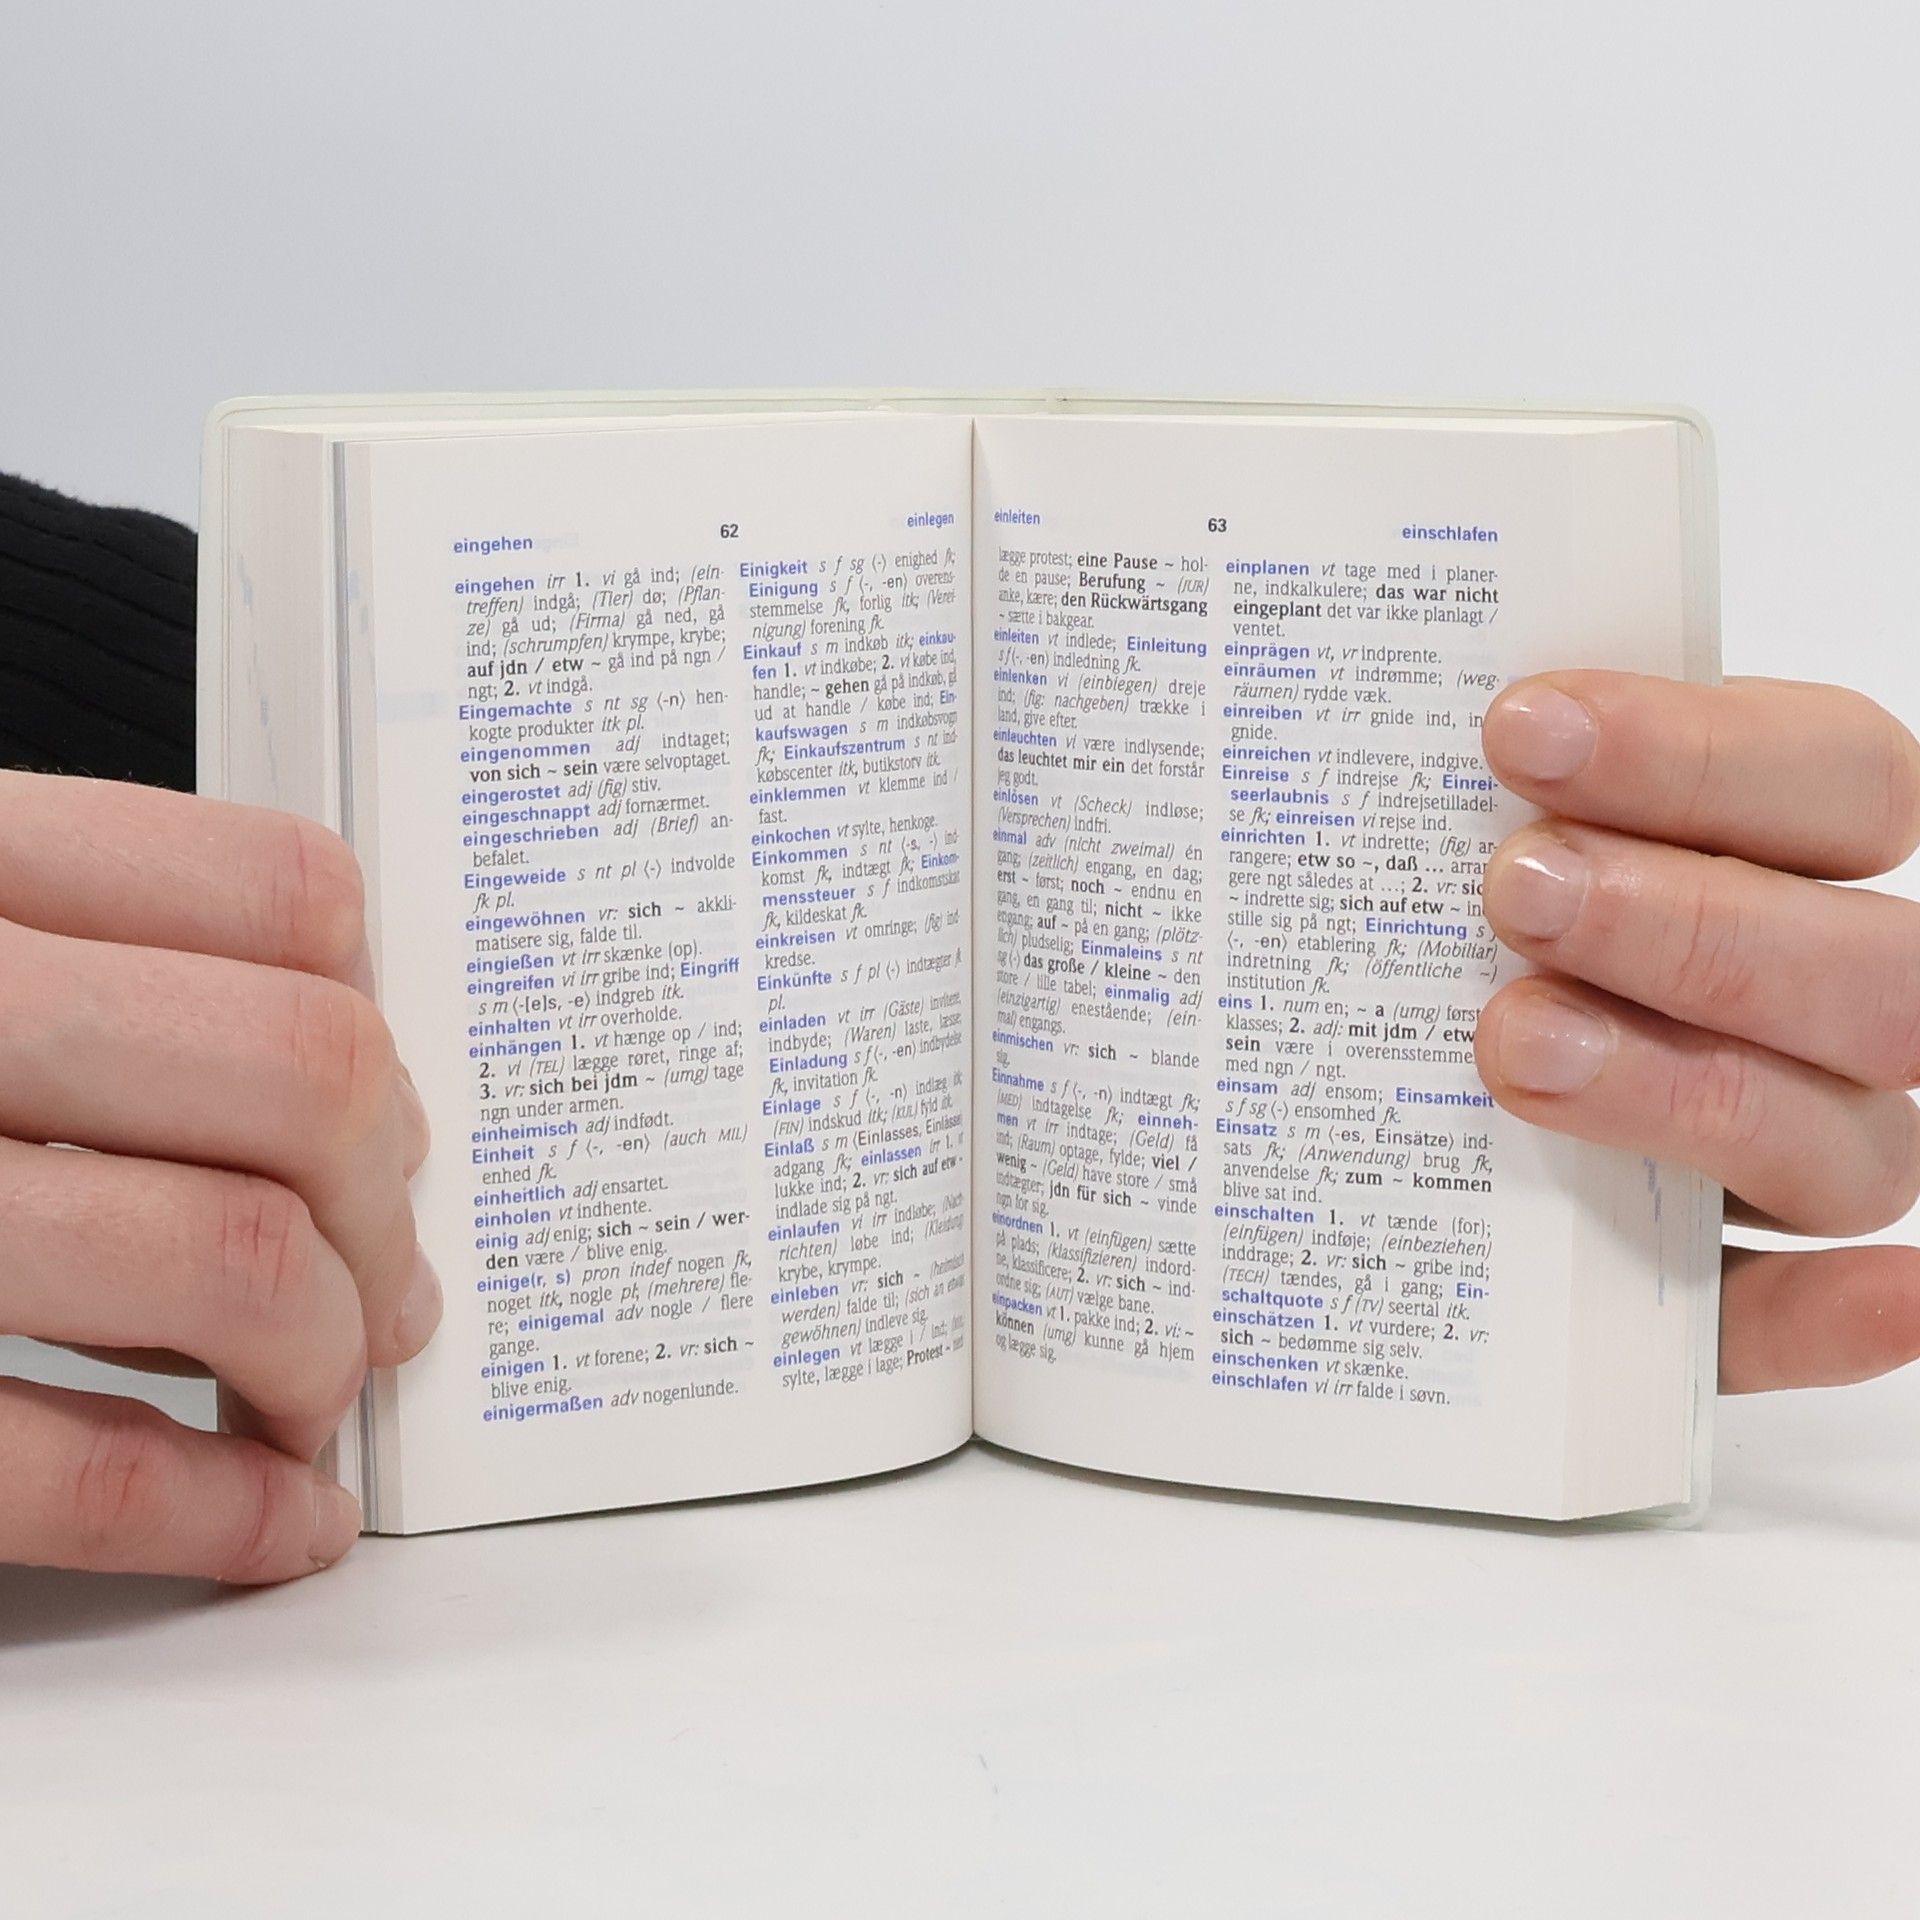 eingehen
62
einlegen
eingehen irr 1. vi gå ind; (ein-
treffen) indgå; (Tier) dø; (Pflan-
ze) gå ud; (Firma) gå ned, gå
ind; (schrumpfen) krympe, krybe;
auf jdn / etw ~ gå ind på ngn /
ngt; 2. vt indgå.
Eingemachte s nt sg ⟨-n⟩ hen-
kogte produkter itk pl.
eingenommen adj indtaget;
von sich ~ sein være selvoptaget.
eingerostet adj (fig) stiv.
eingeschnappt adj fornærmet.
eingeschrieben adj (Brief) an-
befalet.
Eingeweide s nt pl ⟨-⟩ indvolde
fk pl.
eingewöhnen vr: sich ~ akkli-
matisere sig, falde til.
eingießen vt irr skænke (op).
eingreifen vi irr gribe ind; Eingriff
s m ⟨-[e]s, -e⟩ indgreb itk.
einhalten vt irr overholde.
einhängen 1. vt hænge op / ind;
2. vi (TEL) lægge røret, ringe af;
3. vr: sich bei jdm ~ (umg) tage
ngn under armen.
einheimisch adj indfødt.
Einheit s f ⟨-, -en⟩ (auch MIL)
enhed fk.
einheitlich adj ensartet.
einholen vt indhente.
einig adj enig; sich ~ sein / wer-
den være / blive enig.
einige(r, s) pron indef nogen fk,
noget itk, nogle pl; (mehrere) fle-
re; einigemal adv nogle / flere
gange.
einigen 1. vt forene; 2. vr: sich ~
blive enig.
einigermaßen adv nogenlunde.
Einigkeit s f sg ⟨-⟩ enighed fk;
Einigung s f ⟨-, -en⟩ overens-
stemmelse fk, forlig itk; (Verei-
nigung) forening fk.
Einkauf s m indkøb itk; einkau-
fen 1. vt indkøbe; 2. vi købe ind,
handle; ~ gehen gå på indkøb, gå
ud at handle / købe ind; Ein-
kaufswagen s m indkøbsvogn
fk; Einkaufszentrum s nt ind-
købscenter itk, butikstorv itk.
einklemmen vt klemme ind /
fast.
einkochen vt sylte, henkoge.
Einkommen s nt ⟨-s, -⟩ ind-
komst fk, indtægt fk; Einkom-
menssteuer s f indkomstskat
fk, kildeskat fk.
einkreisen vt omringe; (fig) ind-
kredse.
Einkünfte s f pl ⟨-⟩ indtægter fk
pl.
einladen vt irr (Gäste) invitere,
indbyde; (Waren) laste, læsse;
Einladung s f ⟨-, -en⟩ indbydelse
fk, invitation fk.
Einlage s f ⟨-, -n⟩ indlæg itk;
(FIN) indskud itk; (KUL) fyld itk.
Einlaß s m ⟨Einlasses, Einlässe⟩
adgang fk; einlassen irr 1. vt
lukke ind; 2. vr: sich auf etw ~
indlade sig på ngt.
einlaufen vi irr indløbe; (Nach-
richten) løbe ind; (Kleidung)
krybe, krympe.
einleben vr: sich ~ (heimisch
werden) falde til; (sich an etwas
gewöhnen) indleve sig.
einlegen vt lægge i / ind;
sylte, lægge i lage; Protest ~ ned-
einleiten
63
einschlafen
lægge protest; eine Pause ~ hol-
de en pause; Berufung ~ (JUR)
anke, kære; den Rückwärtsgang
~ sætte i bakgear.
einleiten vt indlede; Einleitung
s f ⟨-, -en⟩ indledning fk.
einlenken vi (einbiegen) dreje
ind; (fig: nachgeben) trække i
land, give efter.
einleuchten vi være indlysende;
das leuchtet mir ein det forstår
jeg godt.
einlösen vt (Scheck) indløse;
(Versprechen) indfri.
einmal adv (nicht zweimal) én
gang; (zeitlich) engang, en dag;
erst ~ først; noch ~ endnu en
gang, en gang til; nicht ~ ikke
engang; auf ~ på en gang; (plötz-
lich) pludselig; Einmaleins s nt
sg ⟨-⟩ das große / kleine ~ den
store / lille tabel; einmalig adj
(einzigartig) enestående; (ein-
mal) engangs.
einmischen vr: sich ~ blande
sig.
Einnahme s f ⟨-, -n⟩ indtægt fk;
(MED) indtagelse fk; einneh-
men vt irr indtage; (Geld) få
ind; (Raum) optage, fylde; viel /
wenig ~ (Geld) have store / små
indtægter; jdn für sich ~ vinde
ngn for sig.
einordnen 1. vt (einfügen) sætte
på plads; (klassifizieren) indord-
ne, klassificere; 2. vr: sich ~ ind-
ordne sig; (AUT) vælge bane.
einpacken vt 1. pakke ind; 2. vi: ~
können (umg) kunne gå hjem
og lægge sig.
einplanen vt tage med i planer-
ne, indkalkulere; das war nicht
eingeplant det var ikke planlagt /
ventet.
einprägen vt, vr indprente.
einräumen vt indrømme; (weg-
räumen) rydde væk.
einreiben vt irr gnide ind, in
gnide.
einreichen vt indlevere, indgive.
Einreise s f indrejse fk; Einrei-
seerlaubnis s f indrejsetilladel-
se fk; einreisen vi rejse ind.
einrichten 1. vt indrette; (fig) ar-
rangere; etw so ~, daß ... arran
gere ngt således at ...; 2. vr: sic
~ indrette sig; sich auf etw ~ in
stille sig på ngt; Einrichtung s
⟨-, -en⟩ etablering fk; (Mobiliar)
indretning fk; (öffentliche ~)
institution fk.
eins 1. num en; ~ a (umg) først
klasses; 2. adj: mit jdm / etw
sein være i overensstemme
med ngn / ngt.
einsam adj ensom; Einsamkeit
s f sg ⟨-⟩ ensomhed fk.
Einsatz s m ⟨-es, Einsätze⟩ ind-
sats fk; (Anwendung) brug fk,
anvendelse fk; zum ~ kommen
blive sat ind.
einschalten 1. vt tænde (for);
(einfügen) indføje; (einbeziehen)
inddrage; 2. vr: sich ~ gribe ind;
(TECH) tændes, gå i gang; Ein-
schaltquote s f (TV) seertal itk.
einschätzen 1. vt vurdere; 2. vr:
sich ~ bedømme sig selv.
einschenken vt skænke.
einschlafen vi irr falde i søvn.